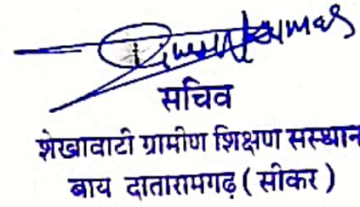 सचिव
शेखावाटी ग्रामीण शिक्षण संस्थान
बाय दातारामगढ़ ( सीकर )